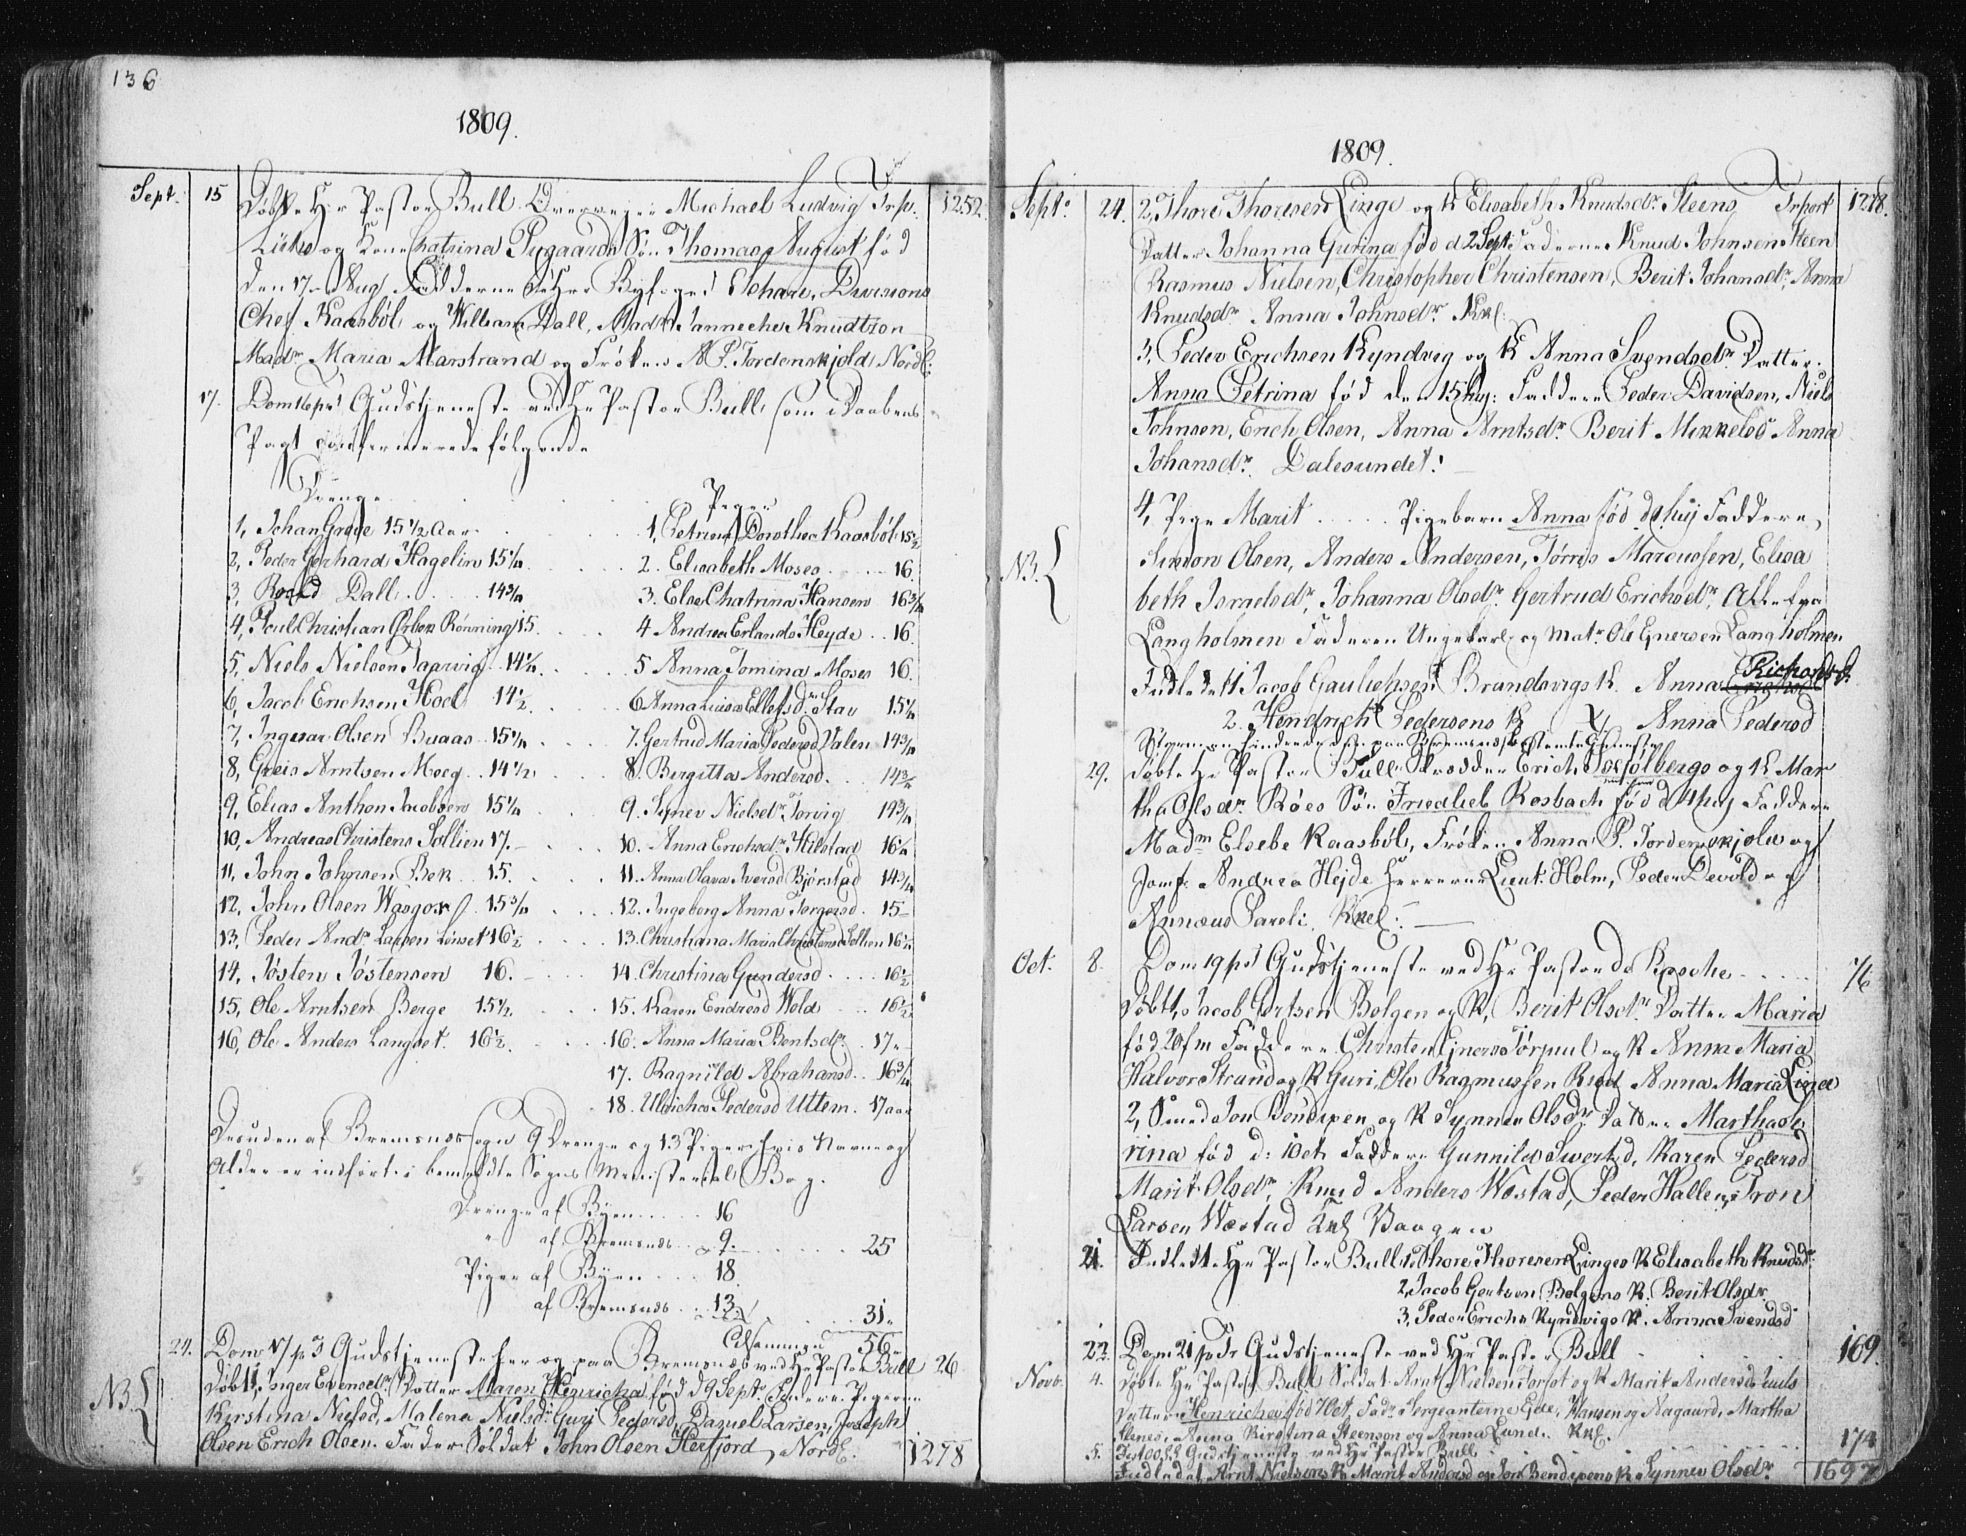 136
1809.
Sept. 15 Døbte Hr Pastor Bull Michael Ludvig Trp. 1252.
og Kone Chatrina Pygaards Søn Thomas August fød
den 17 Aug Fadderne Byfoged Schan, Divisions
Chef Kaasbøl og William Dall, Madm Janneche Knudtzon
Madm Maria Marstrand og Frøken A P. Tordenskjold Nordl:
17. Dom 16 p 3 Gudstjeneste ved Hr Pastor Bull, som i Daabens
Pagt confirmerede følgende
Drenge Piger
1, Johan Grøve 15 1/2 Aar 1, Petrina Dorothea Kaasbøl 15 1/2
2, Peder Gerhard Hagelin 15 1/4 2. Elisabeth Moses 16
3, Dall 14 3/4 3. Else Chatrina Hansen 16 3/4
4, Poul Christian Rønning 15. 4 Andrea Erlands Heyde 16
5, Niels Nielsen Taarvig 14 1/2 5 Anna Tomina Moses 16
6, Jacob Erichsen Hoel 14 1/2 6 Anna Luisa Ellefsdr Stav 15 1/4
7, Ingvar Olsen Buaas 15 1/4 7. Gertrud Maria Pedersd Valen 14 3/4
8, Greis Arntsen Moeg 14 1/2 8. Bergitta Andersd. 14 3/4
9, Elias Anthon Jacobsen 15 1/4 9. Synev Nielsdr Torvig 14 3/4
10, Andreas Christens Sollien 17. 10. Anna Erichsdr Hilstad 16 1/4
11, John Johnsen Bek 15. 11. Anna Olava Iversd Bjørstad 14 3/4
12, John Olsen 15 3/4 12. Ingeborg Anna Torgersd. 15
13, Peder Andr Larsen Lønset 16 1/2 13. Christiana Maria Christensd Sollien 16 1/4
14, Jøsten Jøstensen 16. 14. Christina Gundersd 16 1/2
15, Ole Arntsen Berge 15 1/2 15. Karen Endresd Wold 16 1/2
16, Ole Anders Langset. 16 1/2. 16. Anna Maria Bentsdr. 17
17. Ragnild Abrahamsd. 16 3/4
18. Ulricha Pedersd Uttem. 17 aar
Desuden af Bremsnes Sogn 9 Drenge og 13 Piger hvis Navne og
Alder er indført i bemeldte Sogns Ministerial Bog.
Drenge af Byen 16
" af Bremsnes 9. 25
Piger af Byen 18
af Bremsnes 13. 31.
Tilsammen 56
24. Dom 17 p 3 Gudstjeneste her og paa Bremsnes ved Hr Pastor Bull 26
NB Døbt 1, Inger Evensdr Datter Maren Henricha fød d 9 Sept Faddere Pigerne
Kirstina Nielsd, Malena Nielsdr Guri Pedersd, Daniel Larsen, Joseph
Olsen Erich Olsen. Fader Soldat John Olsen Herfjord, Nordl. 1278
1809.
Sept. 24. 2, Thore Thoresen Linge og K Elisabeth Knudsdr Steens Trsport 1278.
Datter Johanna Gurina fød d 2 Sept Fadderne Knud Johnsen Steen
Rasmus Nielsen, Christopher Christensen, Berit Johansdr, Anna
Knudsdr Anna Johnsdr Kxl.
3, Peder Erichsen Kyndvig og K Anna Svendsdr Datter
Anna Petrina fød den 15 huj: Faddere Peder Davidsen, Niels
Johnsen, Erich Olsen, Anna Arntsdr Berit Mikkelsd Anna
Johansdr. Dalesundet.
NB. 4, Pige Marit . . . . Pigebarn Anna fød d huj Faddere,
Simon Olsen, Anders Andersen, Tørris Marcussen, Elisa
beth Israelsdr, Johanna Olsdr Gertrud Erichsdr, Alle fra
Langholmen Faderen Ungekarl og Matr Ole Enersen Langholmen
Indledet 1 Jacob Gaulichsens Brandsvigs K. Anna Richardsd.
2. Hendrich Pedersens K Anna Pedersd
29. Døbte Hr Pastor Bull Erich Solbergs og K Mar
tha Olsdr Røes Søn Friedlieb Rosbach fød d 4 huj Faddere
Madm Elsebe Kaasbøl, Frøken Anna P. Tordenskjold og
Jomf. Andrea Hejde Herrerne Lieut: Holm, Peder Devold og
Parelí. Kxl:
Oct. 8. Dom 19 p 3 Gudstjeneste ved Hr Pastor de Rosche 76
Døbt 1, Jacob Gertsen Bolgen og K, Berit Olsdr. Datter Maria
fød 20 f m Faddere Christen Eners Tørpul og K Anna Maria
Halvor Strand og K Guri, Ole Rasmussen Anna Maria Lied
2, Smed Jon Bendixen og K Synnev Olsdr Datter Martha Se
rina fød d: 1 Oct. Faddere Gunnild Sivertsd, Karen Pedersd
Marit Olsdr, Knud Anders Wæstad, Peder Hallens, Tron
Larsen Wæstad Kxl Vaagen
21. Indledt Hr Pastor Bull 1, Thore Thoresen Linges K Elisabeth Knudsdr
2, Jacob Gertsen Bolgens K. Berit Olsdr.
3, Peder Erichs Kyndvigs K. Anna Svendsd
22. Dom 21 p Tr Gudstjeneste ved Hr Pastor Bull 169.
Novb. 4. Døbte Hr Pastor Bull Soldat Arnt Nielsen og K Marit Andersd
Datter Henricha fød Oct. Fadr. Sergeanterne Hansen og Aagaard, Martha
Anna Kirstina Steenson og Anna Lund. Kxl.
5. Gudstjeneste ved Hr Pastor Bull 174
Indledet Arnt Nielsens K Marit Andersd og Jon Bendixens K. Synnev Olsdr 1697